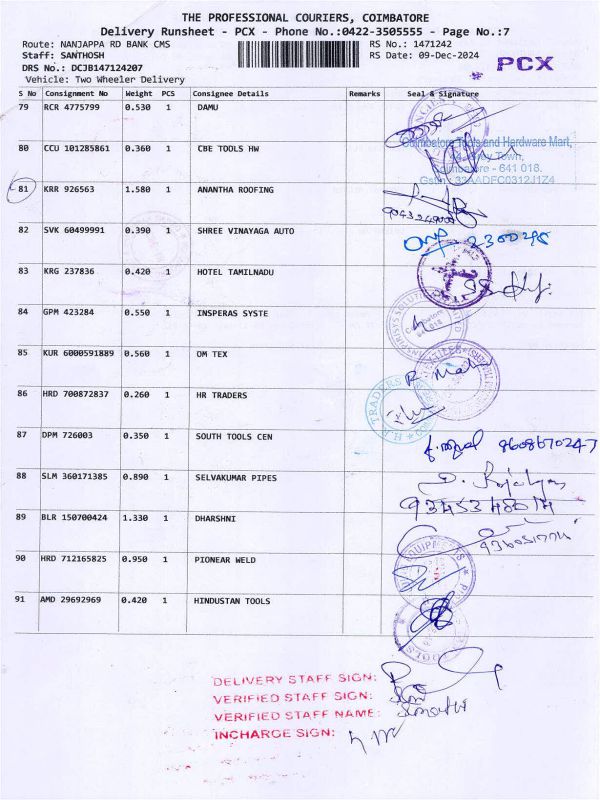 THE PROFESSIONAL COURIERS, COIMBATORE
Delivery Runsheet - PCX - Phone No.:0422-3505555 - Page No.:7
Route: NANJAPPA RD BANK CMS RS No.: 1471242
Staff: SANTHOSH RS Date: 09-Dec-2024
DRS No.: DCJB147124207 PCX
Vehicle: Two Wheeler Delivery
S No Consignment No Weight PCS Consignee Details Remarks Seal & Signature
79 RCR 4775799 0.530 1 DAMU
Coimbatore Tools and Hardware Mart,
80 CCU 101285861 0.360 1 CBE TOOLS HW
Town,
Coimbatore - 641 018.
81 KRR 926563 1.580 1 ANANTHA ROOFING
82 SVK 60499991 0.390 1 SHREE VINAYAGA AUTO
83 KRG 237836 0.420 1 HOTEL TAMILNADU
84 GPM 423284 0.550 1 INSPERAS SYSTE
85 KUR 6000591889 0.560 1 OM TEX
86 HRD 700872837 0.260 1 HR TRADERS
H.R. TRADERS
87 DPM 726003 0.350 1 SOUTH TOOLS CEN
9608670247
88 SLM 360171385 0.890 1 SELVAKUMAR PIPES
89 BLR 150700424 1.330 1 DHARSHNI
90 HRD 712165825 0.950 1 PIONEAR WELD
91 AMD 29692969 0.420 1 HINDUSTAN TOOLS
DELIVERY STAFF SIGN:
VERIFIED STAFF SIGN:
VERIFIED STAFF NAME:
INCHARGE SIGN: